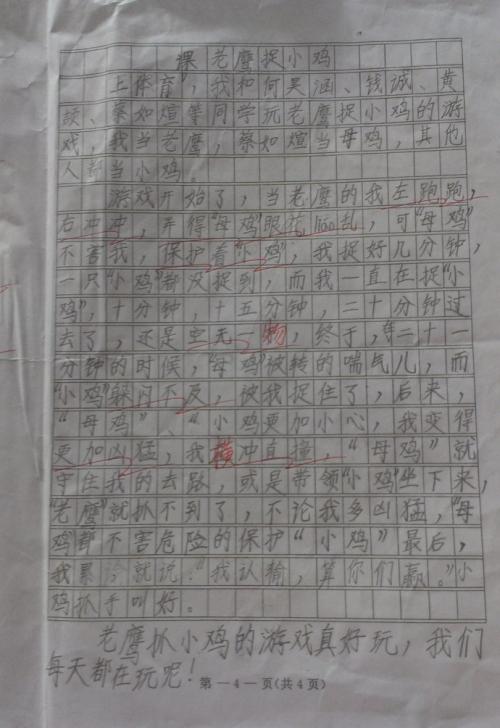 老鹰捉小鸡
上体育课，我和何昊涵、钱诚、黄
颉、蔡如煊等同学玩老鹰捉小鸡的游
戏，我当老鹰，蔡如煊当母鸡，其他
人都当小鸡。
游戏开始了，当老鹰的我左跑跑，
右冲冲，弄得“母鸡”眼花liáo乱，可“母鸡”
不害我，保护着“小鸡”，我捉好几分钟，
一只“小鸡”都没捉到，而我一直在捉“小
鸡”，十分钟，十五分钟，二十分钟过
去了，还是空无一物，终于，在二十一
分钟的时候，“母鸡”被转的喘气儿，而
“小鸡”躲闪不及，被我捉住了，后来，
“母鸡”、“小鸡更加小心，我变得
更加凶猛，我横冲直撞，“母鸡”就
守住我的去路，或是带领“小鸡”坐下来，
“老鹰”就抓不到了，不论我多凶猛，“母
鸡”都不害危险的保护“小鸡”最后，
我累 就说：“我认输，算你们赢。”小
鸡抓手叫好。
老鹰抓小鸡的游戏真好玩，我们
每天都在玩呢！
第—4—页(共4页)